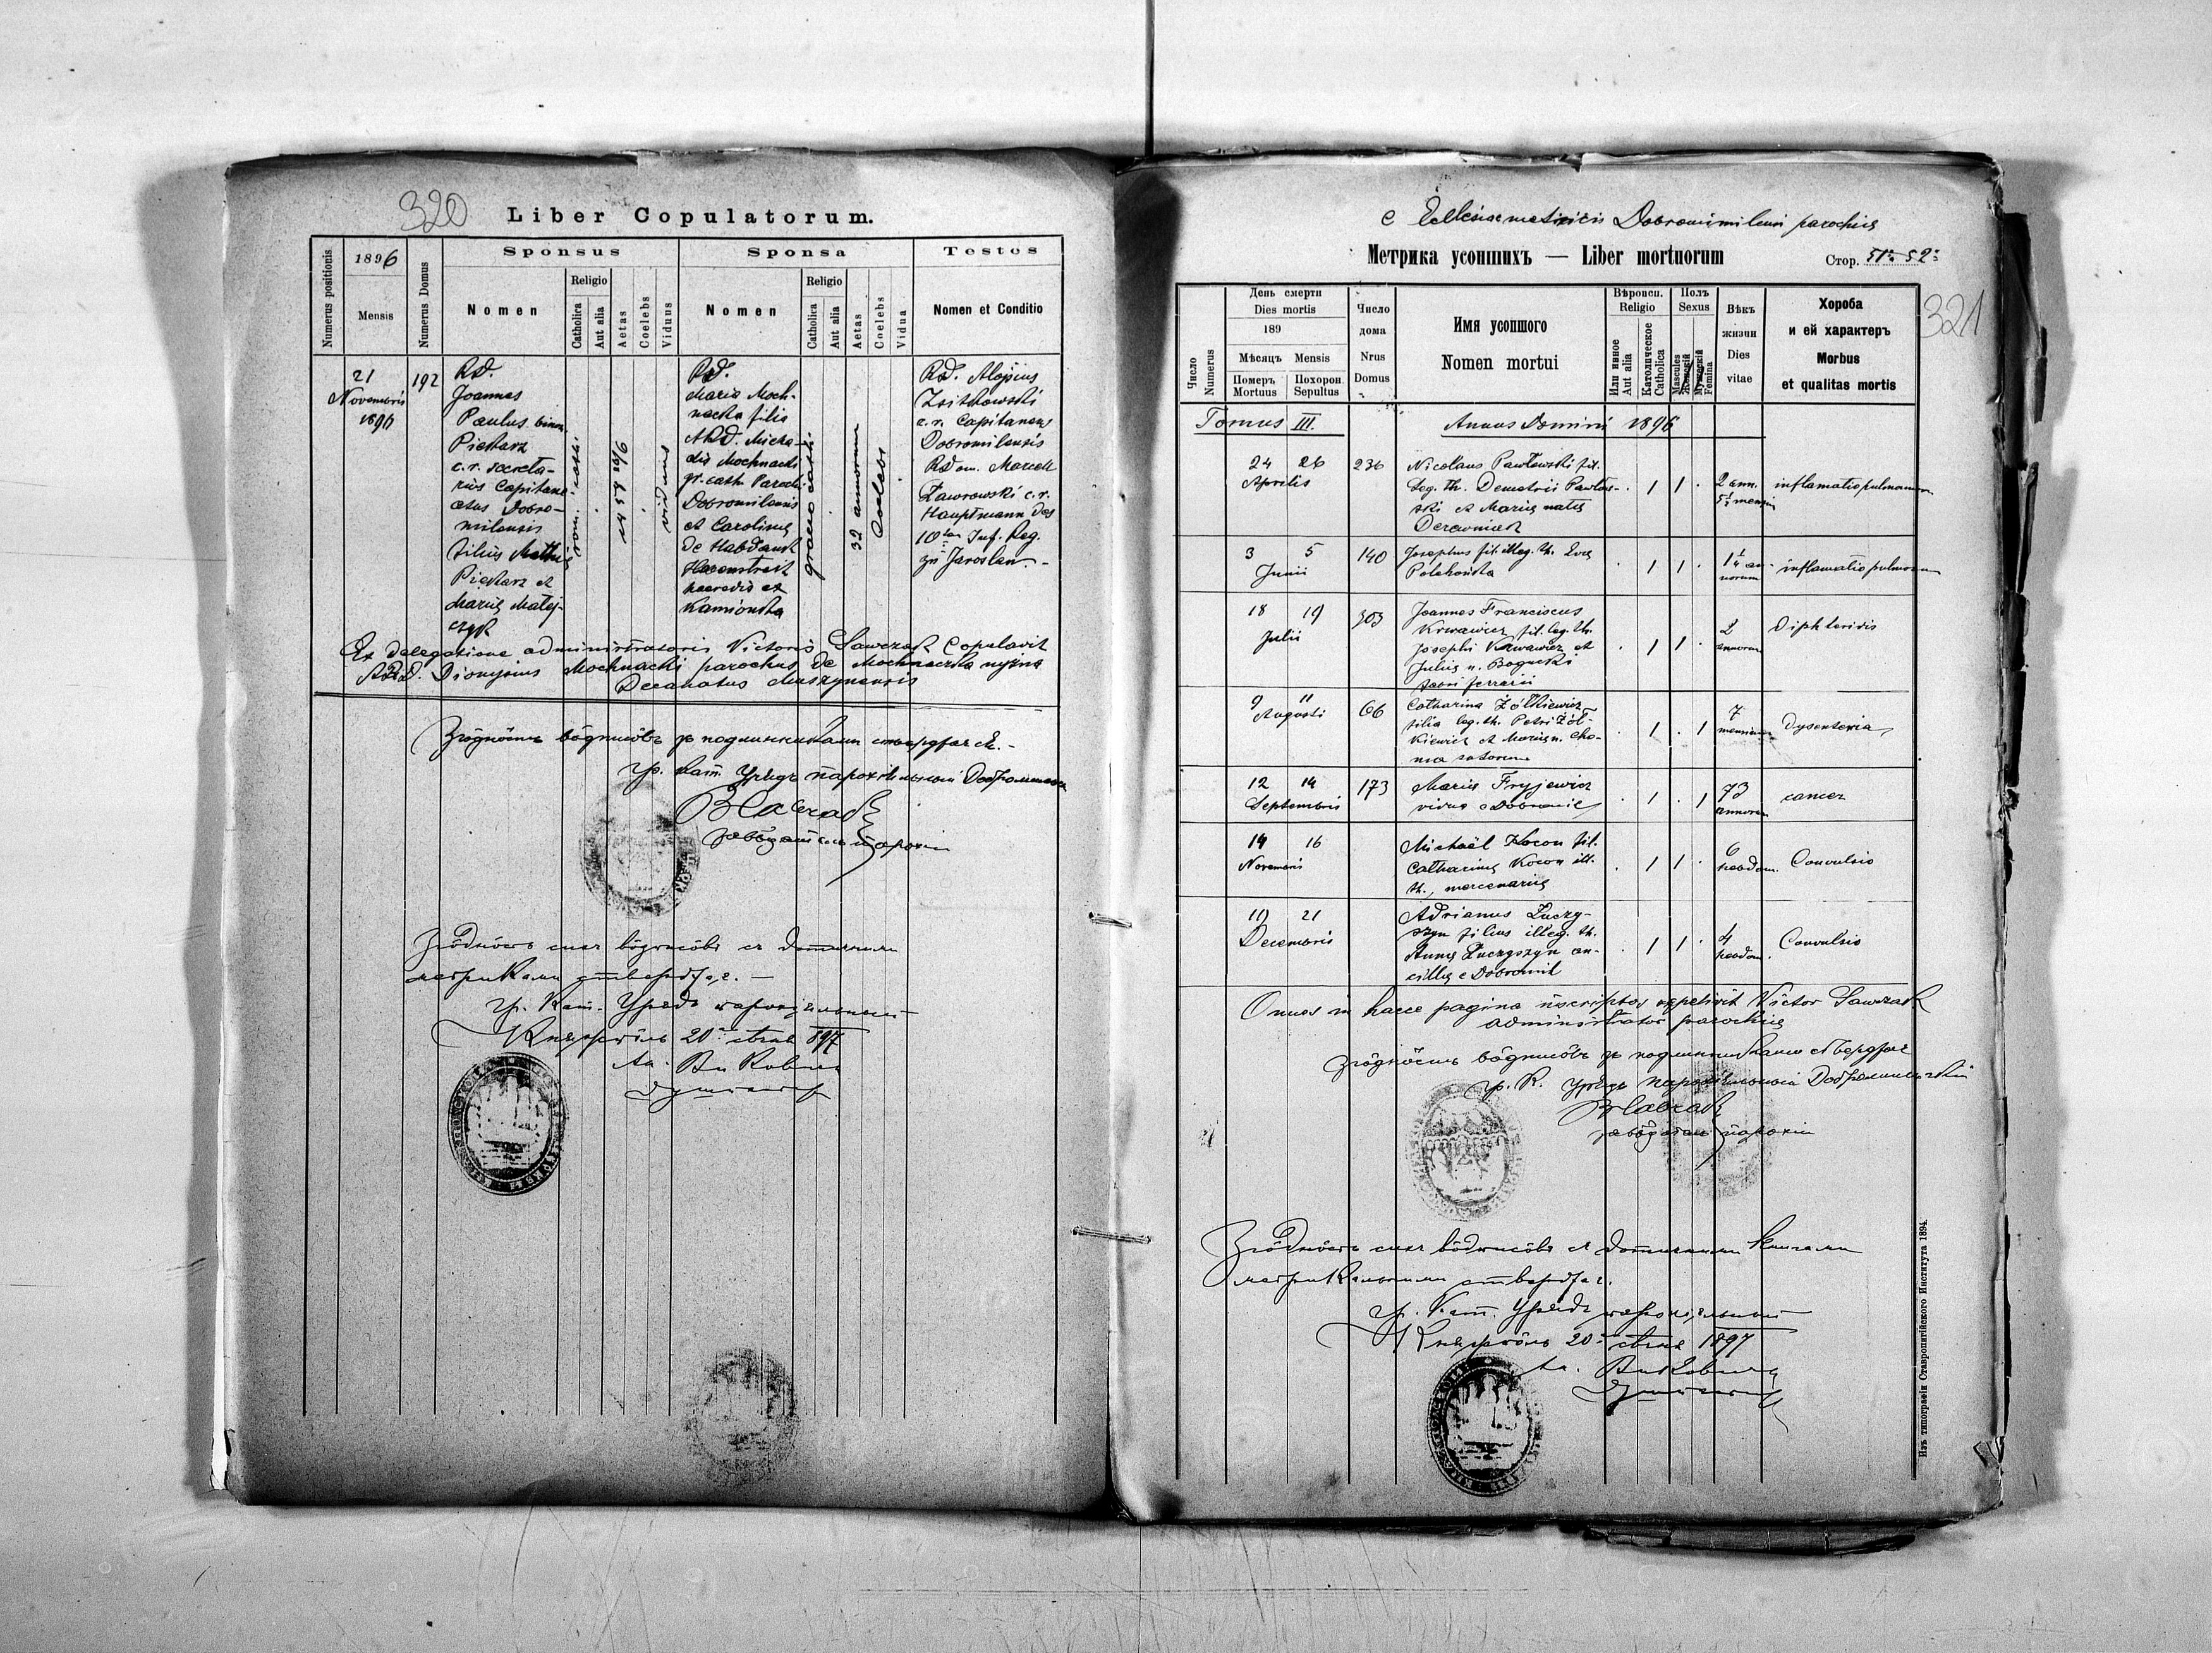 320
Liber Copulatorum.
Numerus positionis
1896
Mensis
Numerus Domus
Sponsus
Nomen
Religio
Catholica
Aut alia
Aetas
Coelebs
Viduus
Sponsa
Nomen
Religio
Catholica
Aut alia
Aetas
Coelebs
Vidua
Testes
Nomen et Conditio
21
Novembris
1896
192
Rd.
Joannes
Paulus binom
Piekarz
c. r. secreta-
rius Capitane-
atus Dobro-
milensis
filius Mathiae
Piekarz et
Mariae Matej-
czyk
rom. cath.
viduus
Rd.
Maria Moch-
nacka filia
ARd. Micha-
elis Mochnacki
gr. cath. Parochi
Dobromilensis
et Carolinae
de Habdank
haeredis et
Kamionka
graeco cath.
32 annorum
Coelebs
Rd. Aloysius
c. r. Capitaneus
Dobromilensis
Rd om. Marcell
Zaworowski c. r.
Hauptmann des
10ten Inf. Reg.
zu Jaroslau
Ex delegatione administratoris Victoris Sawczak Copulavit
ARd. Dionysius Mochnacki parochus de Mochnaczka nyżna
Decanatus Muszynensis
Згôднôсть вôдписôвъ зъ подлинниками стверджає.-
гр. кат. Урядъ парохіяльный
завѣдатель парохіи
Згôднôсть сихъ вôдписôвъ съ
метриками стверджає. -
гр. кат. Урядъ парохіяльный
Княжпôль 20 1897
e Dobromilensi parochiae
Метрика усопшихъ — Liber mortuorum
Стор. 51-52
321
Число
Numerus
День смерти
Dies mortis
189
Мѣсяцъ Mensis
Померъ
Mortuus
Похорон.
Sepultus
Число
дома
Nrus
Domus
Имя усопшого
Nomen mortui
Вѣроиси.
Religio
Или инное
Aut alia
Католическое
Catholica
Полъ
Sexus
Masculus
Женскій
Мужескій
Femina
Вѣкъ
жизни
Dies
vitae
Хороба
и ей характеръ
Morbus
et qualitas mortis
Tomus III.
Annus Domini 1896
24 26
Aprilis
236
Nicolaus Pawłowski fil.
leg. th. Demetrii Pawłow-
ski et Mariae natae
Derewniak
1 1
2 ann.
5½ mensium
inflamatio pulmonum
3 5
Junii
140
Josephus fil. illeg. th. Evae
Polchońska
1 1
1¼ an-
norum
inflamatio pulmonum
18 19
Julii
303
Joannes Franciscus
Krwawicz fil. leg. th.
Josephi Krwawicz et
Juliae n. Bogucki
fabri ferrarii
1 1
2
annorum
Diphteridis
9 11
Augusti
66
Catharina Żółkiewicz
filia leg. th. Petri Żół-
kiewicz et Mariae n. Cho-
ma
1 1
7
mensium
Dysenteria
12 14
Septembris
173
Maria Fryjewicz
vidua e Dobromil
1 1
73
annorum
cancer
14 16
Novembris
Michaël Kocon fil.
Catharinae Kocon ill.
th., mercenariae
1 1
6
hebdom.
Convulsio
19 21
Decembris
Adrianus Łuczy-
szyn filius illeg. th.
Annae Łuczyszyn an-
cillae e Dobromil
1 1
4
hebdom.
Convulsio
Omnes in hacce pagina inscriptos sepelivit Victor Sawczak
administrator parochiae
Згôднôсть вôдписôвъ зъ подлинниками стверджає
гр. к. Урядъ парохіяльный Добромильскій
завѣдатель парохіи
Згôднôсть сихъ вôдписôвъ съ книгами
метрикальными стверджає.
гр. кат. Урядъ парохіяльный
Княжпôль 20 1897
Изъ типографіи Ставропигійского Института 1894.